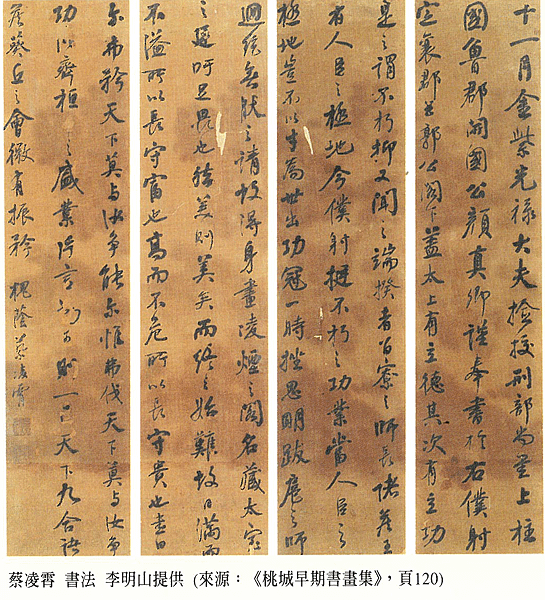 十一月金紫光祿大夫檢挍刑部尚書上柱
國魯郡開國公顏真卿謹奉書於右僕射
定襄郡王郭公閤下蓋太上有立德其次有立功
是之謂不朽抑又聞之端揆者百寮之師長諸侯王
者人臣之極地今僕射挺不朽之功業當人臣之
極地豈不以才為世出功冠一時挫思明跋扈之師
迴紇無猒之情故得身畫凌煙之閣名藏太室
之廷吁足畏也然美則美矣而終之始難故曰滿而
不溢所以長守富也高而不危所以長守貴也書曰
尔弗矜天下莫与汝争能尔惟弗伐天下莫与汝争
功以齊桓公之盛業片言勤王則一匡天下九合諸
侯葵丘之會微有振矜 槐蔭蔡凌霄
蔡凌霄 書法 李明山提供 (來源：《桃城早期書畫集》，頁120)